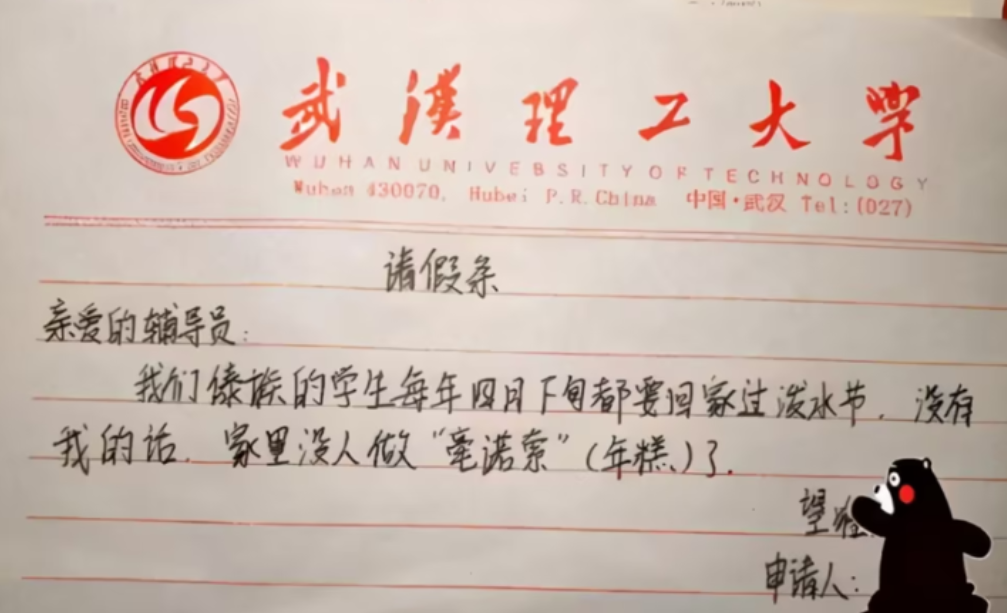 武汉理工大学
WUHAN UNIVEBSITY OF TECHNOLOGY
Wuhan 430070, Hubei P.R.China 中国·武汉 Tel:(027)
请假条
亲爱的辅导员:
我们傣族的学生每年四月下旬都要回家过泼水节,没有
我的话,家里没人做“毫诺索”(年糕)了.
望
申请人: